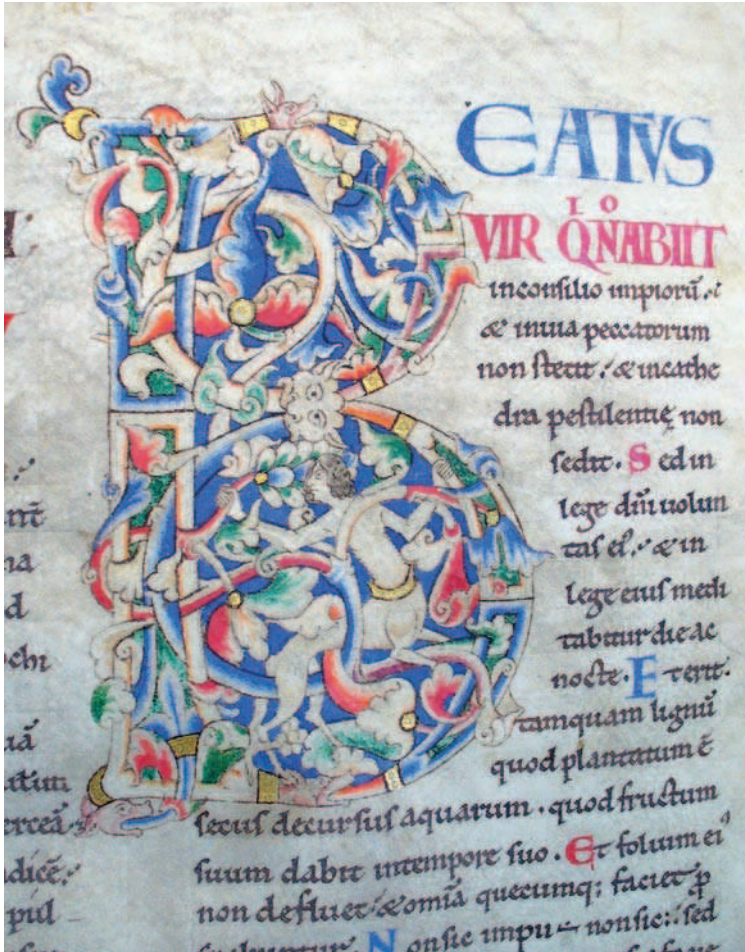 BEATVS
VIR QͥNͦ ABIIT
in consilio impiorū.
& in uia peccatorum
non stetit. & in cathe
dra pestilentię non
sedit. Sed in
lege dn̄i uolun
tas ei. & in
lege eius medi
tabitur die ac
nocte. Et erit
tamquam lignū
quod plantatum ē
secus decursus aquarum. quod fructum
suum dabit in tempore suo. Et folium ei
non defluet. & om̄ia quecumq; faciet
Non sic impii non sic: sed